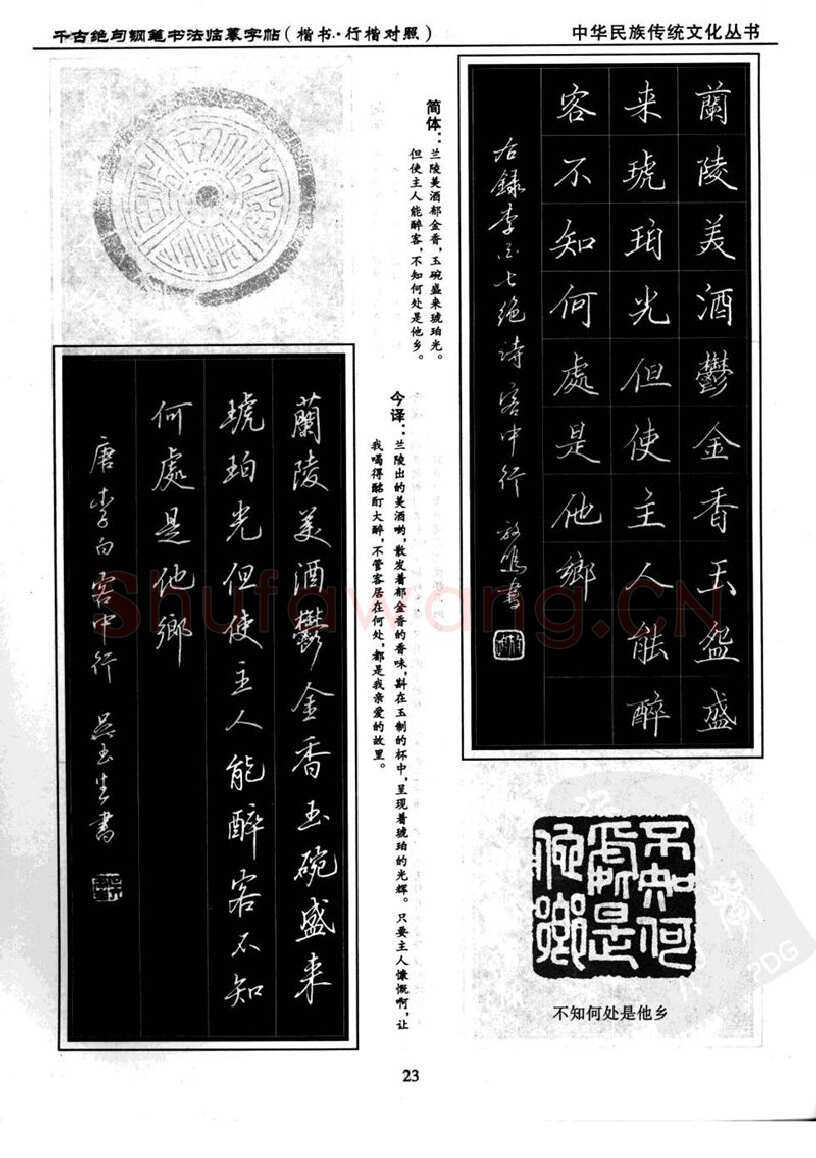 千古绝句钢笔书法临摹字帖(楷书·行楷对照)
中华民族传统文化丛书
蘭陵美酒鬱金香玉盌盛
来琥珀光但使主人能醉
客不知何處是他鄉
右録李白七绝诗客中行
简体：兰陵美酒郁金香，玉碗盛来琥珀光。
但使主人能醉客，不知何处是他乡。
今译：兰陵出的美酒哟，散发着郁金香的香味，斟在玉制的杯中，呈现着琥珀的光辉。只要主人慷慨啊，让
我喝得酩酊大醉，不管客居在何处，都是我亲爱的故里。
蘭陵美酒鬱金香玉碗盛来
琥珀光但使主人能醉客不知
何處是他鄉
唐李白客中行 吴玉生書
不知何
處是
他鄉
不知何处是他乡
Shufawang.CN
PDG
23